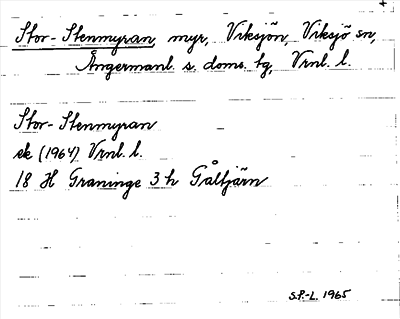 Stor-Stenmyran, myr, Viksjön, Viksjö sn,
Ångermanl. s. doms. tg, Vrnl. l.
Stor-Stenmyran
ek (1964) Vrnl. l.
18 H Graninge 3 h Gåltjärn
S.P.-L. 1965